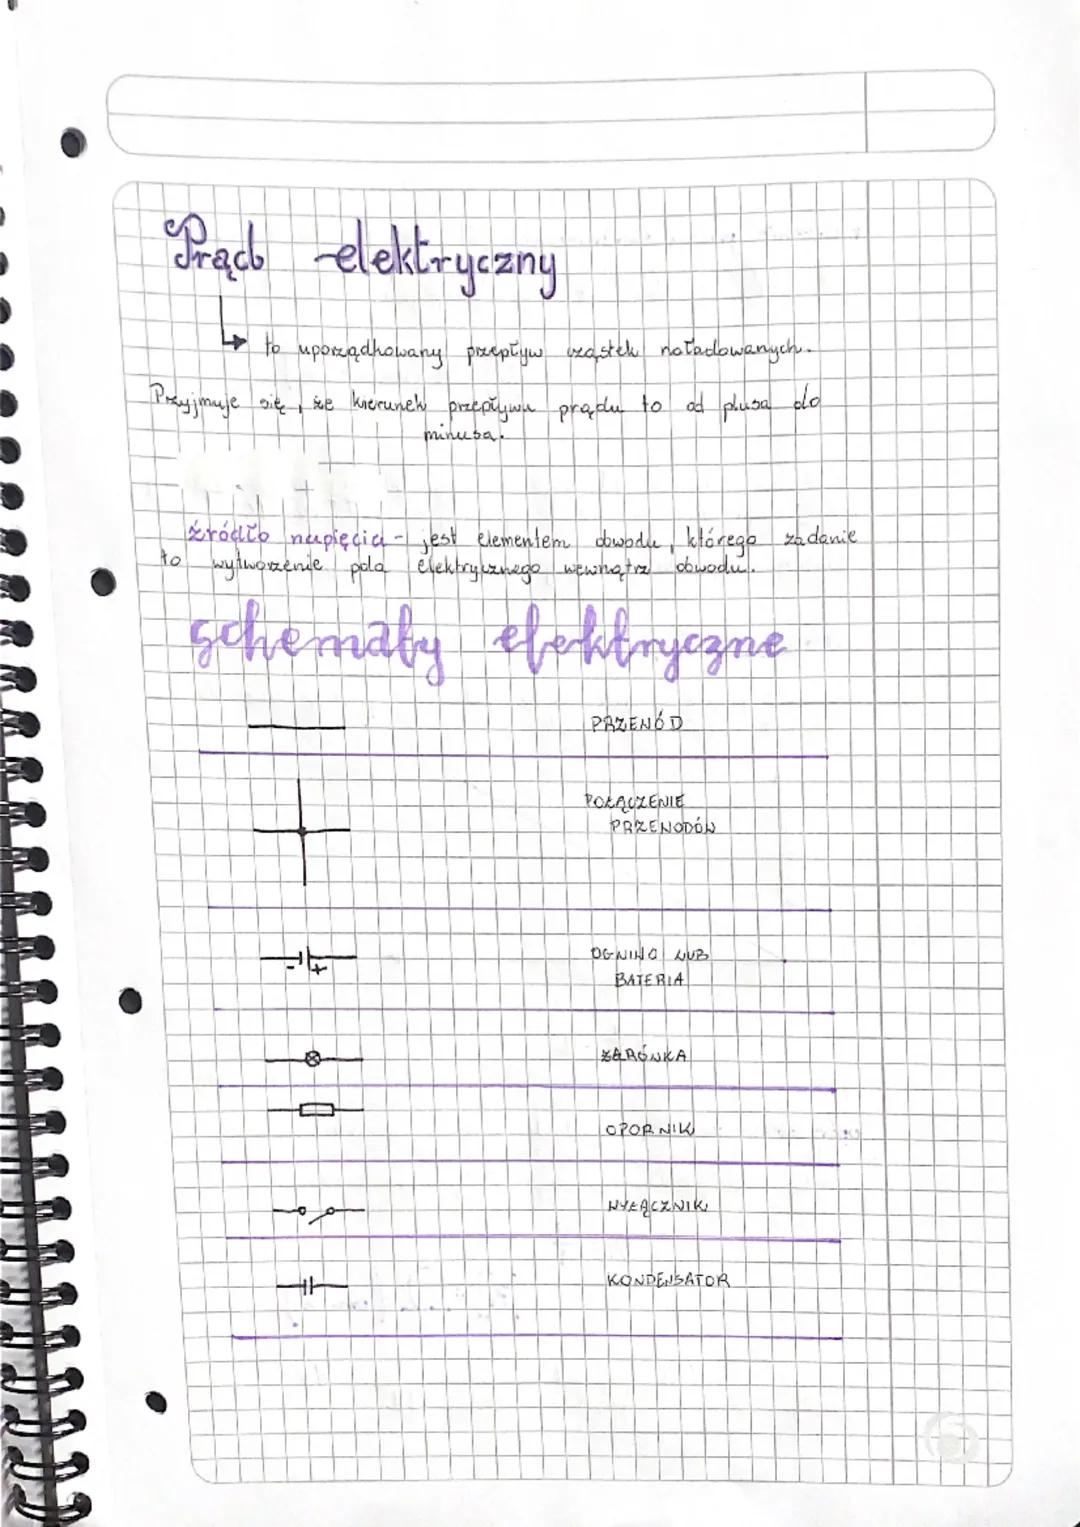 Prąd elektryczny
to uporządkowany przepływ cząstek naładowanych.
Przyjmuje się, że kierunek przepływu prądu to od plusa do
minusa.
źródło napięcia - jest elementem obwodu, którego zadanie
to wytworzenie pola elektrycznego wewnątrz obwodu.
schematy elektryczne
PRZEWÓD
POŁĄCZENIE
PRZEWODÓW
OGNIWO LUB
- +
BATERIA
ŻARÓWKA
OPORNIK
WYŁĄCZNIK
KONDENSATOR